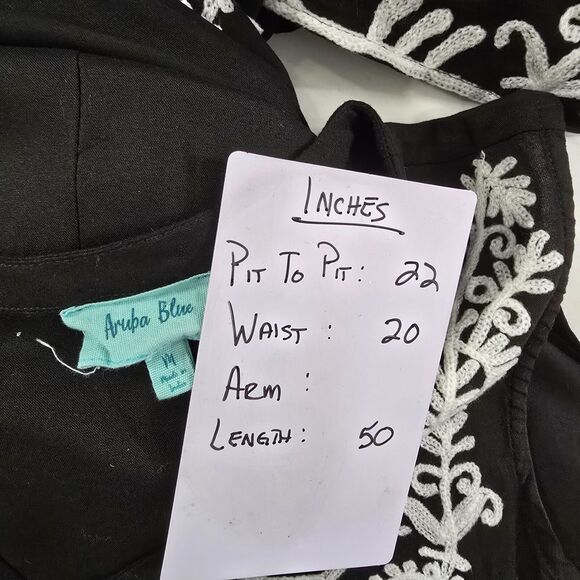 INCHES
PIT TO PIT: 22
WAIST : 20
ARM :
LENGTH: 50
Aruba Blue
M
Made in
India